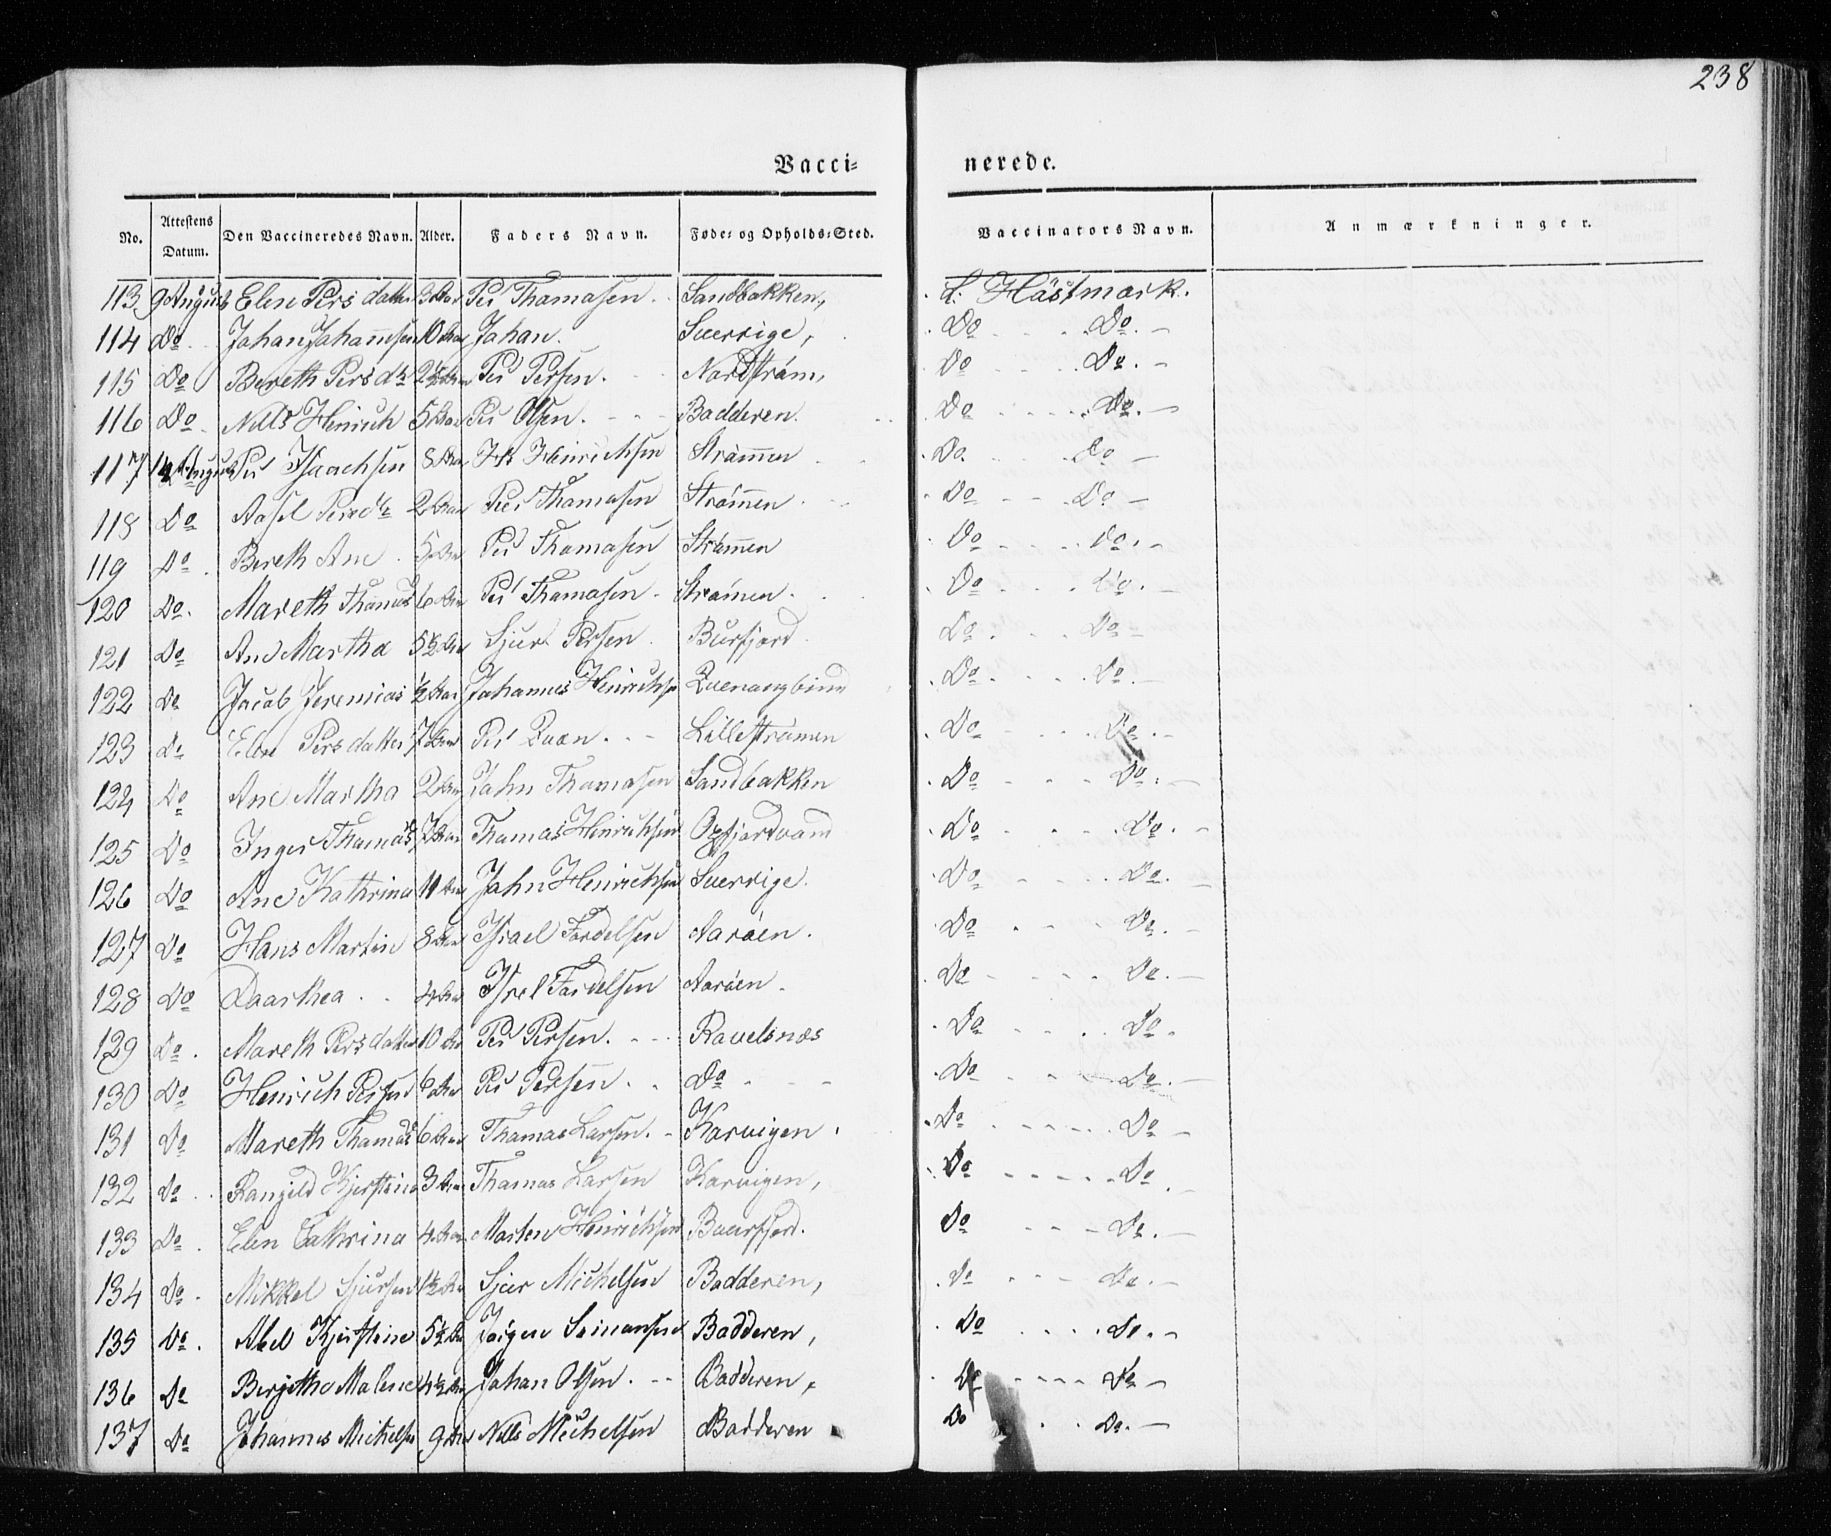 238
Vacci= nerede.
No. Attestens Datum. Den Vaccineredes Navn. Alder. Faders Navn. Føde= og Opholds=Sted. Vaccinators Navn. Anmærkninger.
113 9 August Elen Persdatter 3 Per Thomasen Sandbakken, Hästmark.
114 Do Johan Johannsen 10 Johan. Sverrige, Do Do
115 Do Bereth Persdr 2½ Per Persen. Nordstrøm, Do Do
116 Do Nills Heinrich 5 Per Olsen. Badderen. Do Do
117 August Per Isaachsen 8 Heinrichsen Strømmen Do Do
118 Do 2 Per Thomasen Strømen Do Do
119 Do Bereth Ane 5 Per Thomasen Strømen Do Do
120 Do. Mareth Thomas 6 Per Thomasen Strømen. Do Do
121 Do Ane Martha 5½ Sjur Persen Burfjord Do Do
122 Do Jacob Jeremias ½ Johannes Heinrichsen Do Do
123 Do Elen Persdatter 7 Per Qvæn. Lillestrømen Do Do
124 Do Ane Martha 2 John Thomasen Sandbakken Do Do
125 Do Inger Thomas 7 Thomas Heinrichsen Do Do
126 Do Ane Kathrina 11 John Heinrichsen Sverrige. Do Do
127 Do Hans Martin 8 Israel Fordelsen Aarøen. Do Do
128 Do Daarthea 4 Isrel Fordelsen Aarøen. Do Do
129 Do. Mareth Persdatter 10 Per Persen. Ravelsnæs Do Do
130 Do Heinrich Persen 6 Per Persen Do Do Do
131 Do Mareth Thomas 6 Thomas Larsen. Karvigen. Do Do
132 Do Rangild Kjerstina 3 Thomas Larsen Karvigen, Do Do
133 Do. Elen Cathrina 4 Morten Heinrichsen Buurfjord. Do Do
134 Do. Mikkel Sjursen 1½ Sjur Michelsen Badderen, Do Do
135 Do. Abel Kjerstine 5½ Jørgen Simonsen Badderen, Do Do
136 Do Berjethe Malene 4½ Johan Olsen. Badderen, Do Do
137 Do Johannes Michelsen 9 Nills Michelsen Badderen Do Do